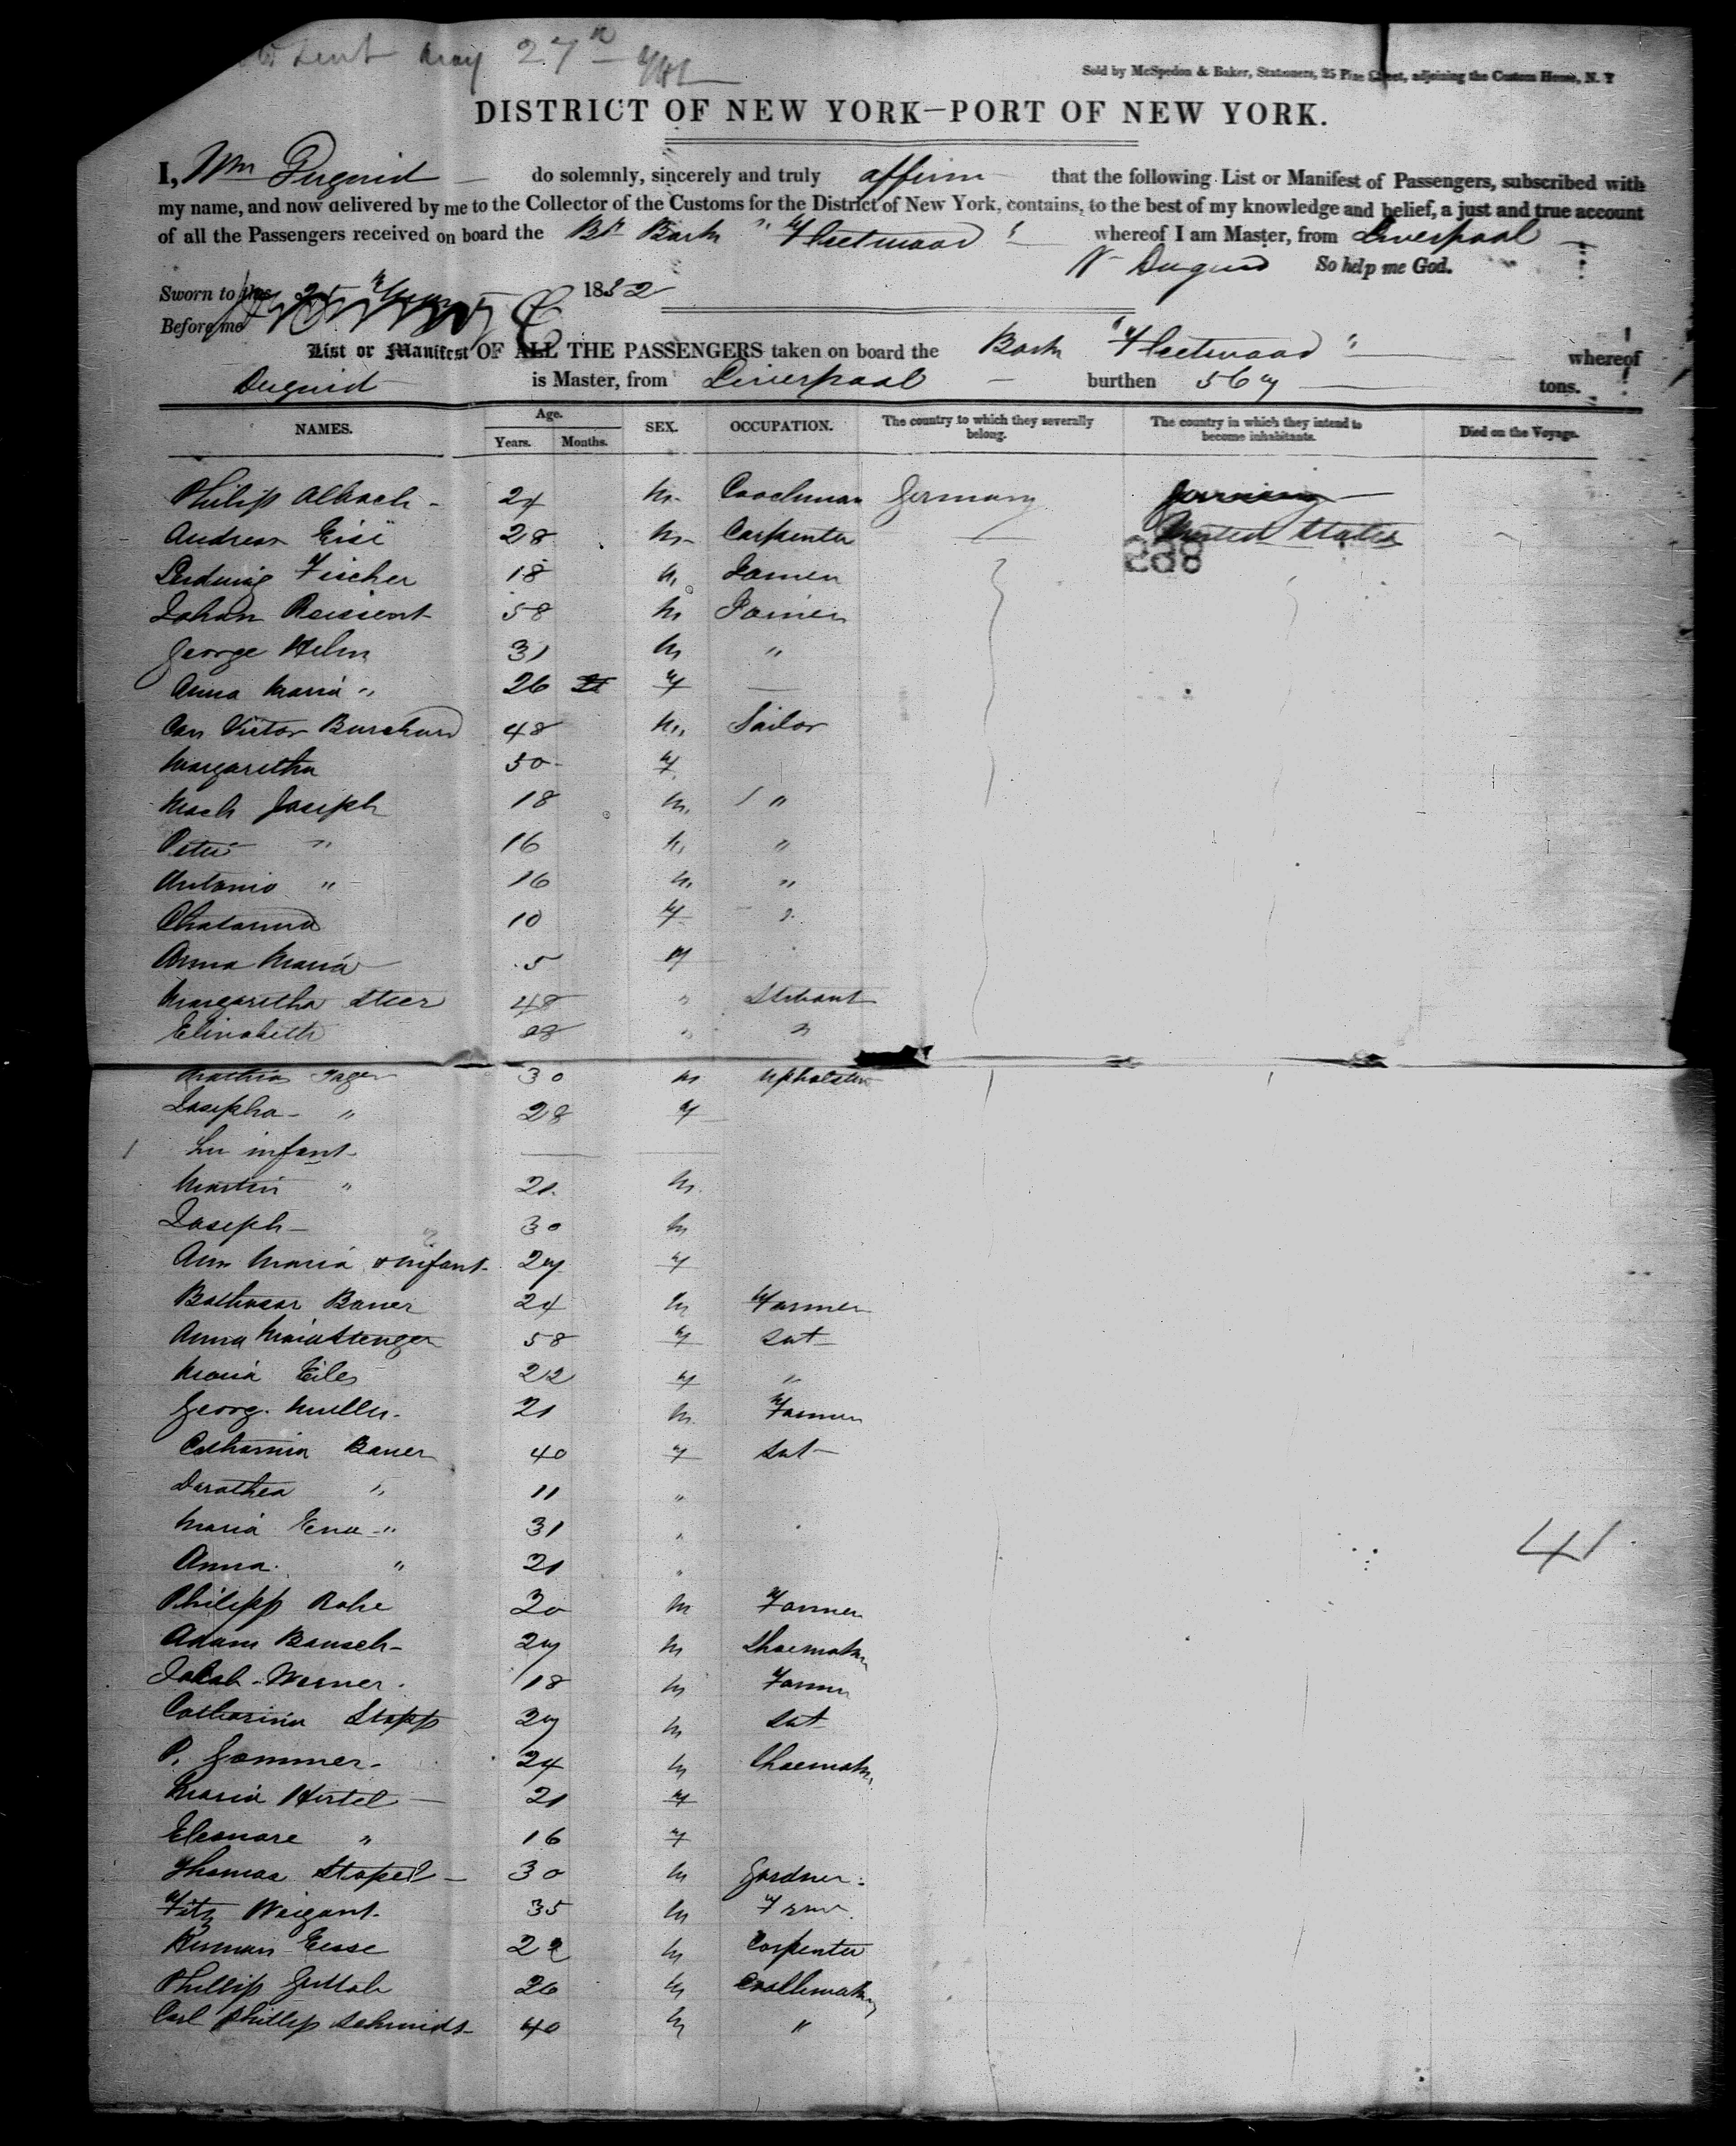 Sent May 27th
Sold by McSpedon & Baker, Stationers, 25 Pine Street, adjoining the Custom House, N. Y
DISTRICT OF NEW YORK—PORT OF NEW YORK.
I, Wm Duguid do solemnly, sincerely and truly affirm that the following List or Manifest of Passengers, subscribed with
my name, and now delivered by me to the Collector of the Customs for the District of New York, contains, to the best of my knowledge and belief, a just and true account
of all the Passengers received on board the Br Bark "Fleetwood" whereof I am Master, from Liverpool
W Duguid So help me God.
Sworn to this 1852
Before me
List or Manifest OF ALL THE PASSENGERS taken on board the Bark "Fleetwood" whereof
Duguid is Master, from Liverpool burthen 567 tons.
NAMES. Age. Years. Months. SEX. OCCUPATION. The country to which they severally belong. The country in which they intend to become inhabitants. Died on the Voyage.
Philip Albach - 24 m Coachman Germany Germany
Andreas 28 m Carpenter United States
288
Ludwig Fischer 18 m
Johan 58 m
George Helm 31 m "
Anna Maria " 26 f
Victor Burchard 48 m Sailor
Margaretha 50 f
Joseph 18 m "
Peter " 16 m "
Antonio " 16 m "
10 f "
Anna Maria 5 f
Margaretha Steer 48 " Servant
Elisabeth 28 " "
Mathias Jager 30 m Upholster
Josepha " 28 f
infant
Martin " 21 m
Joseph 30 m
Ann Maria & infant 27 f
Balthasar Bauer 24 m Farmer
Anna Maria Stenger 58 f Svt
Maria Eiles 22 f "
Georg. Muller 21 m Farmer
Catharina Bauer 40 f Svt
Dorothea " 11 "
Maria Eva " 31 "
Anna " 21 "
41
Philipp Rohe 20 m Farmer
Adam Bausch 27 m Shoemaker
Jakob Werner 18 m Farmer
Catharina Stapp 27 m Svt
P. Gommer 24 m Shoemaker
Maria Hertel 21 f
Eleonore " 16 f
Thomas Stapel 30 m Gardner
Weigant 35 m
22 m Carpenter
Phillip 26 m
Carl Phillip Schmidt 40 m "